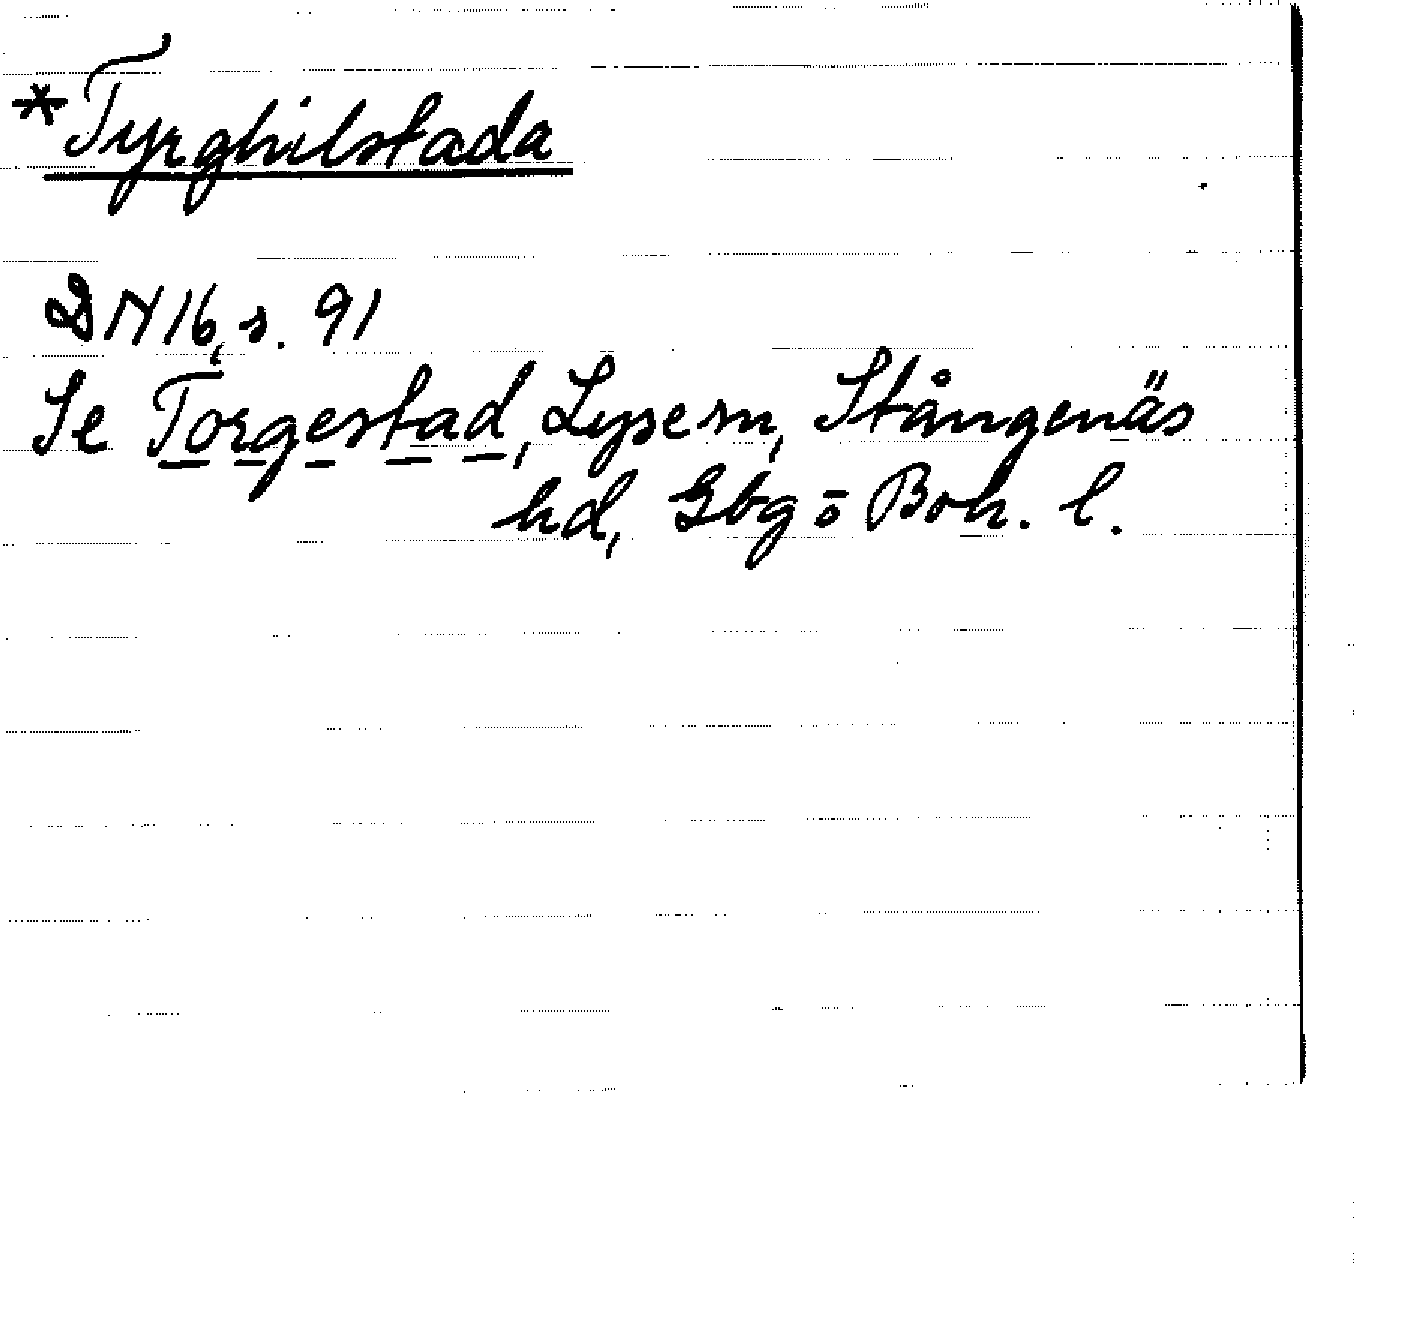 *Tyrghilstada
DN 16, s. 91
Se Torgestad, Lyse sn, Stångenäs
hd, Gbg o Boh. l.